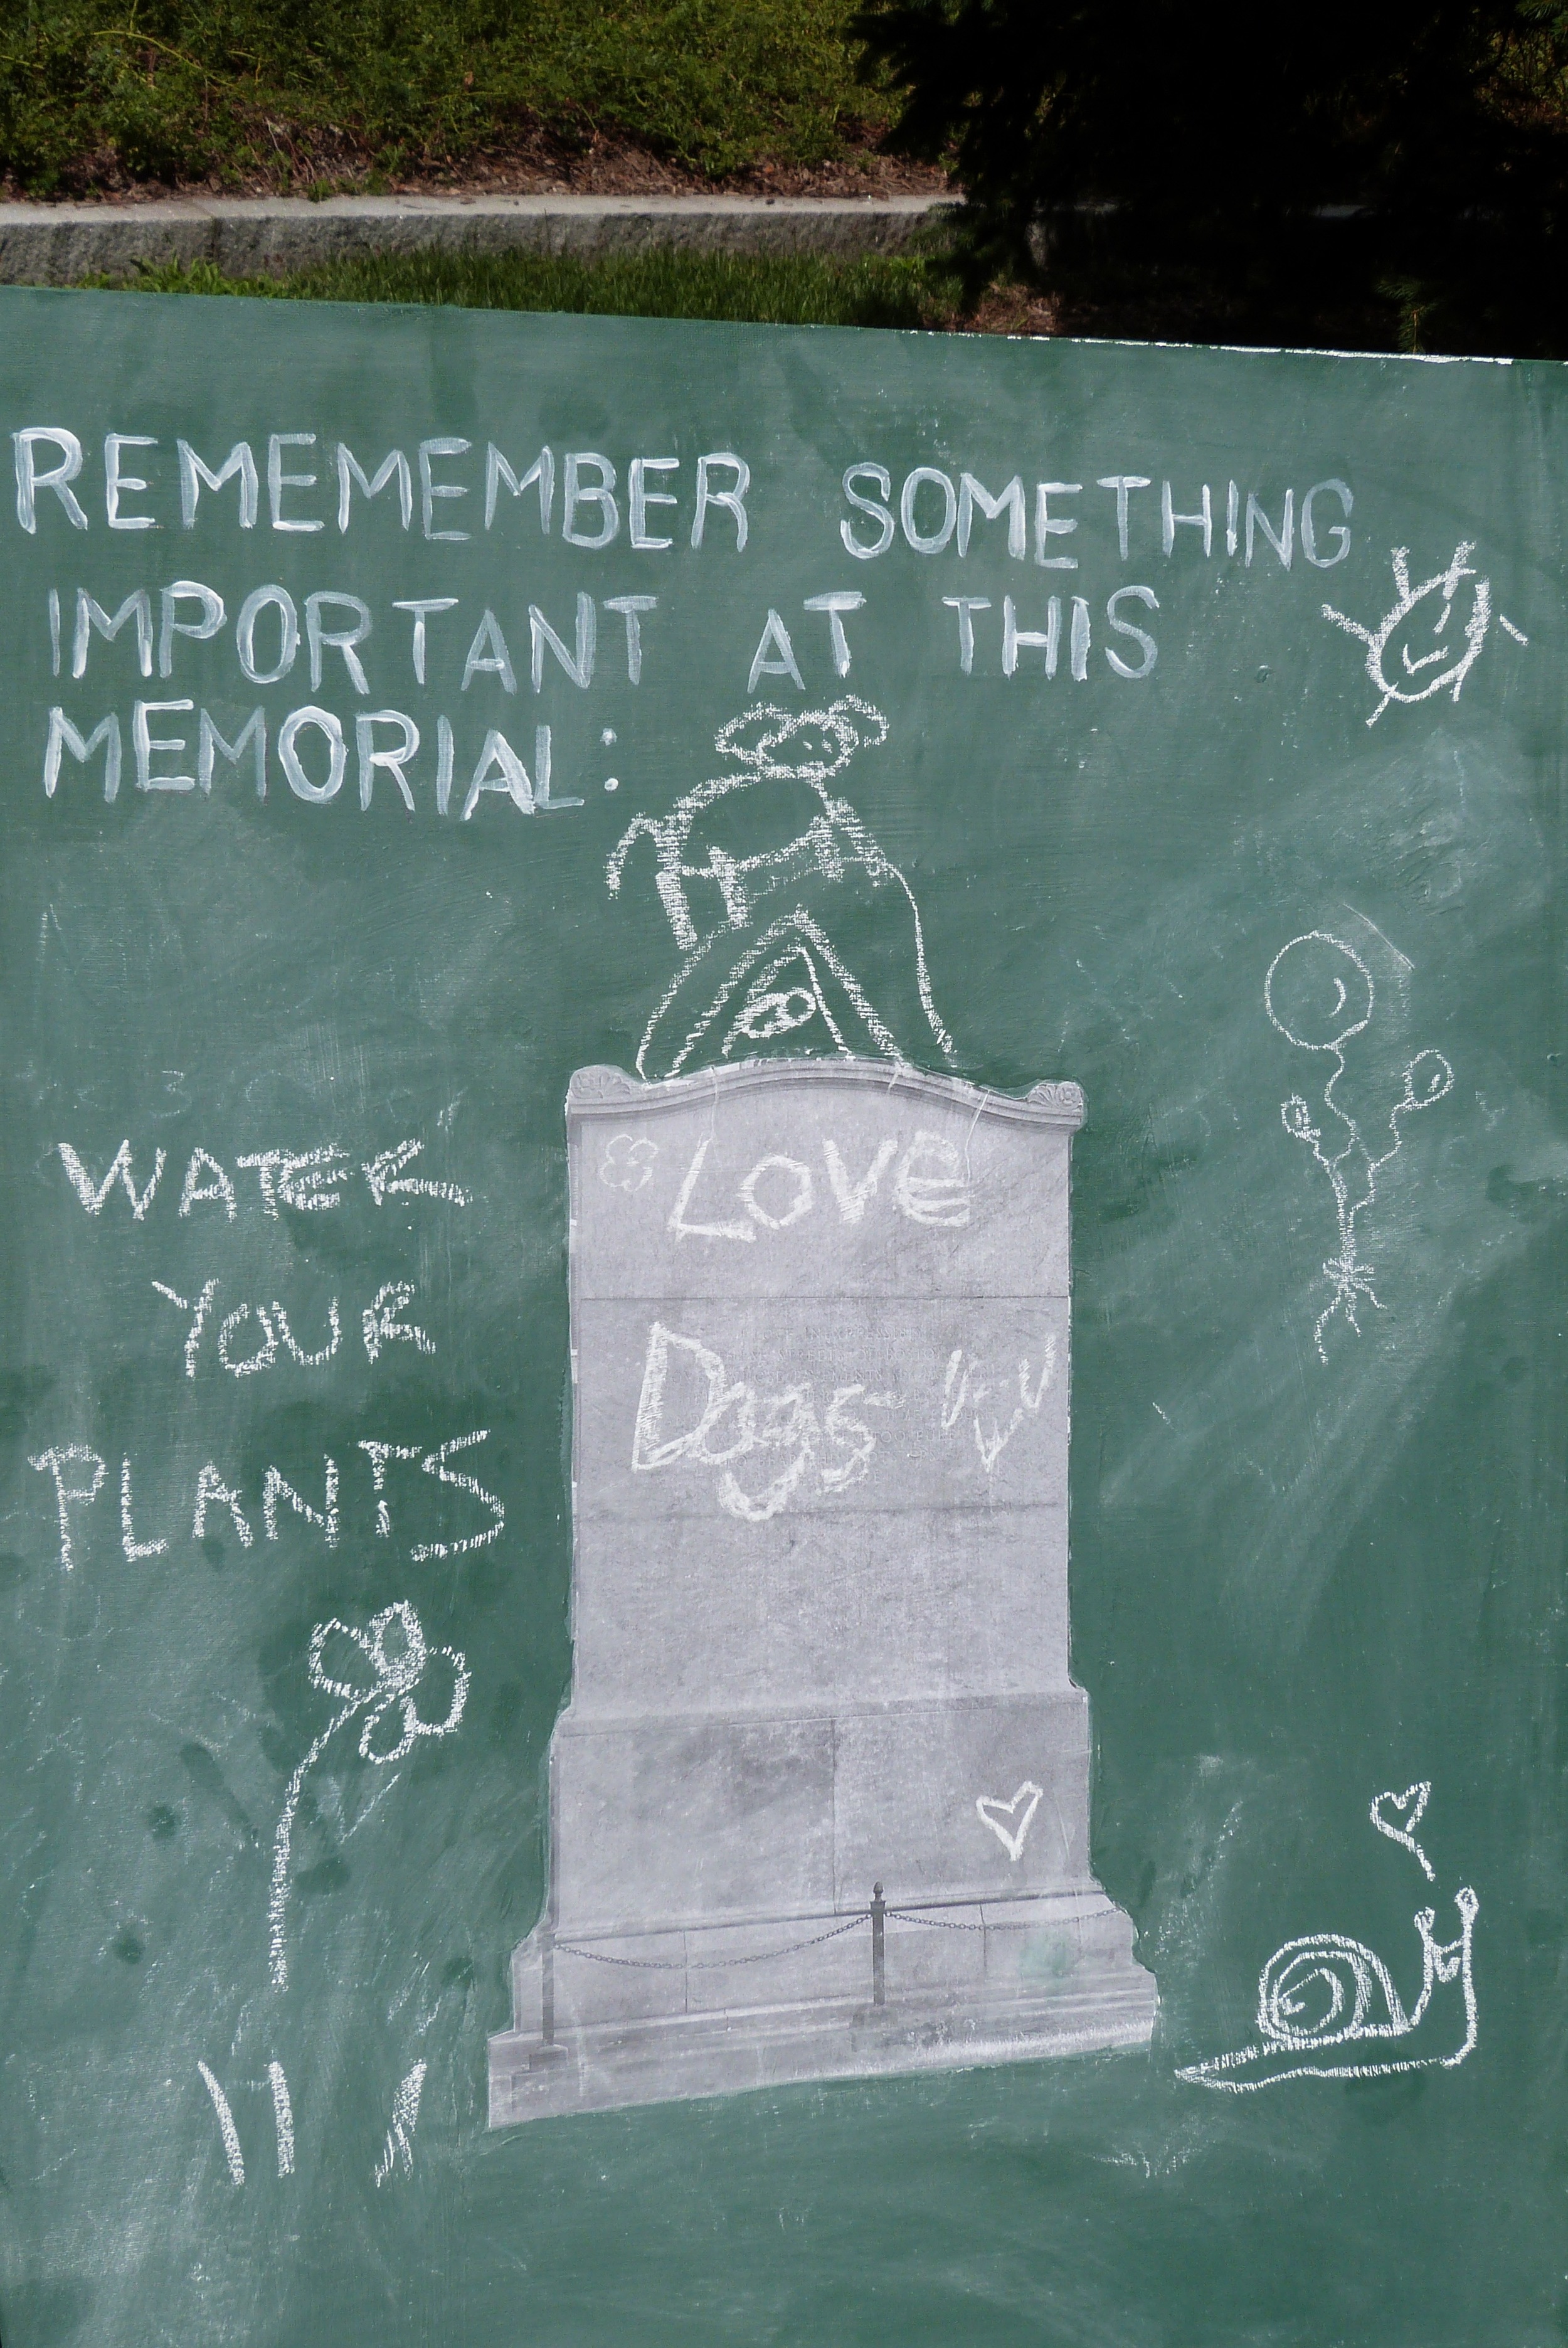 REMEMEMBER SOMETHING
IMPORTANT AT THIS
MEMORIAL:
WATER
YOUR
PLANTS
LOVE
Dogs